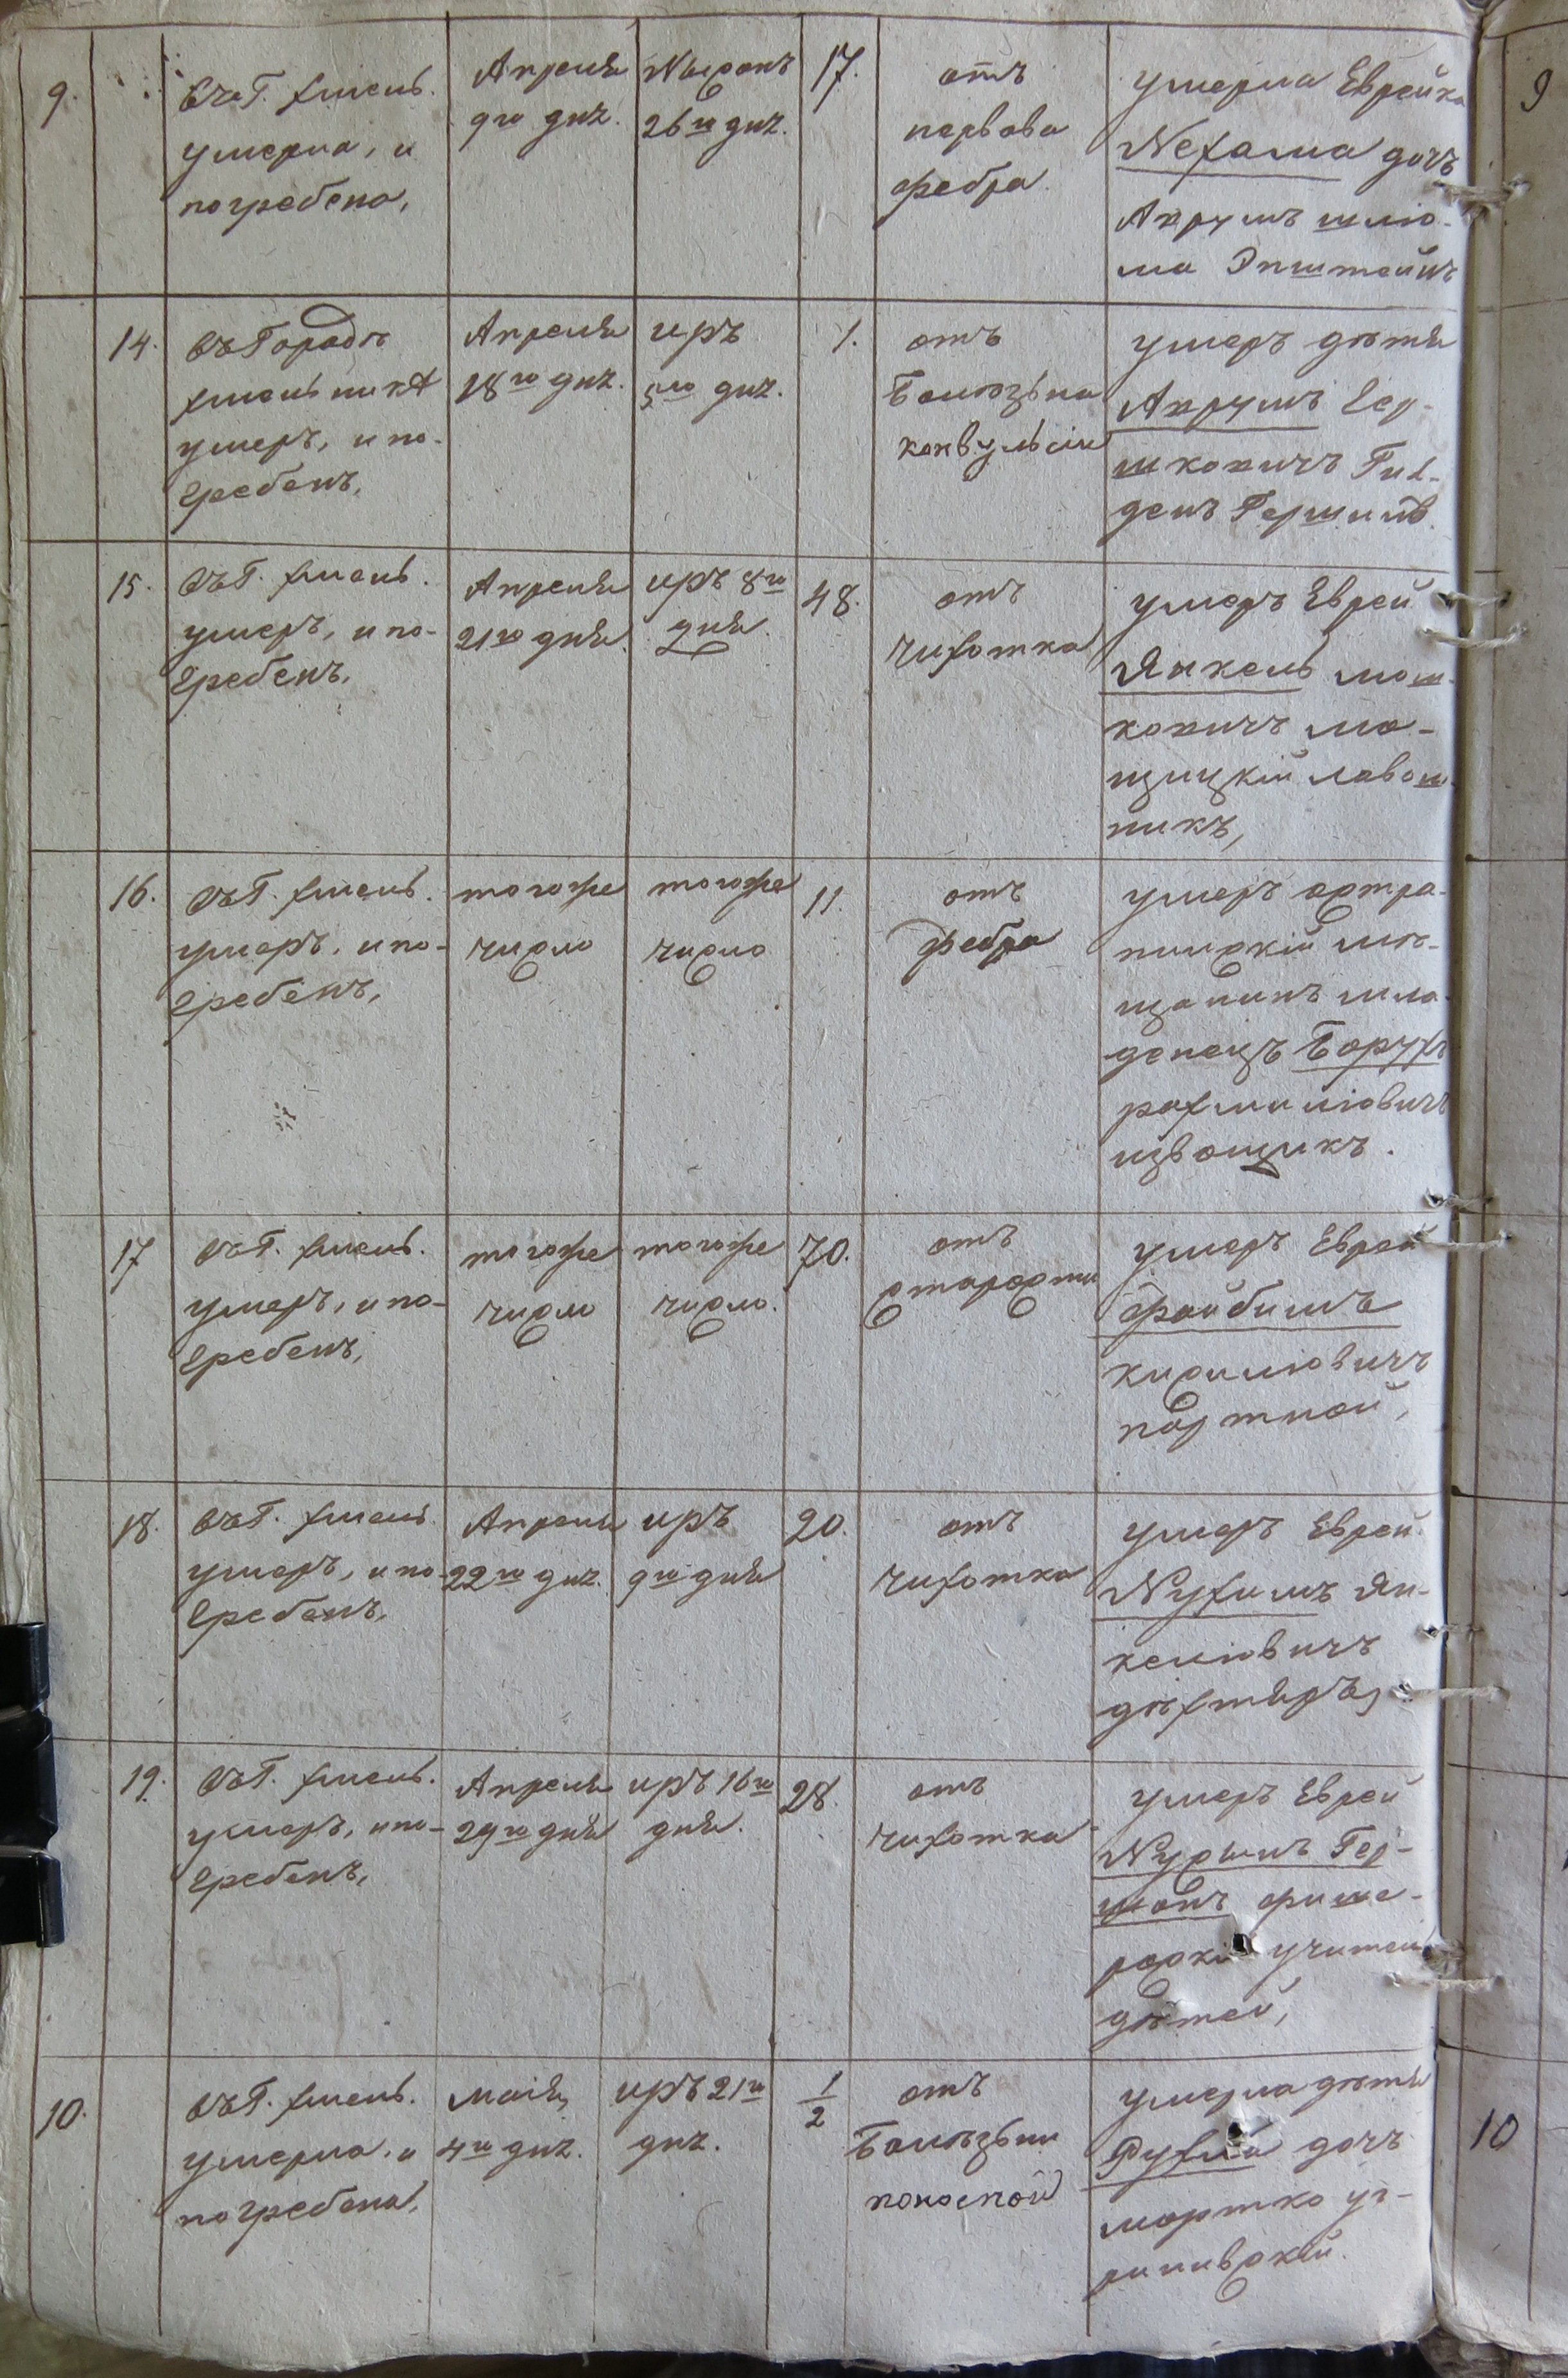 9.
въ Г. хмель.
умерла, и
погребена,
Апреля
9го дня.
Нысонъ
26го дня.
17.
отъ
первова
фебра.
умерла Еврейка
Нехама дочь
Аврумъ шлю-
ма Эпштейнъ
14.
въ Городъ
хмельникѣ
умеръ, и по-
гребенъ,
Апреля
18го дня.
иръ
5го дня.
1.
отъ
Болюзьна
конвульсіи
умеръ дѣтя
Аврумъ Гер-
шковичъ
15.
въ Г. хмель.
умеръ, и по-
гребенъ,
Апреля
21го дня.
иръ 8го
дня.
48.
отъ
чихотка
умеръ Еврей
Янкель мош-
ковичъ
лавош
никъ,
16.
въ Г. хмель.
умеръ, и по-
гребенъ,
тогоже
число
тогоже
число
11.
отъ
фебра
умеръ остра-
польскій мѣ-
щанинъ мла-
денецъ Борухъ
рахмилювичъ
извощикъ.
17
въ Г. хмель.
умеръ, и по-
гребенъ,
тогоже
число
тогоже
число.
70.
отъ
старости
умеръ Еврей
Файбишъ
кисилювичъ
портной,
18.
въ Г. хмель.
умеръ, и по-
гребенъ,
Апреля
22го дня.
иръ
9го дня
20.
отъ
чихотка
умеръ Еврей
Нухимъ Ян-
келювичъ
дѣхтяръ,
19.
въ Г. хмель.
умеръ, и по-
гребенъ,
Апреля
29го дня
иръ 16го
дня.
28.
отъ
чихотка
умеръ Еврей
Нусынъ Гер-
шонъ
учитель
дѣтей,
10.
въ Г. хмель.
умерла, и
погребена,
маія
4го дня.
иръ 21го
дня.
1/2
отъ
Болюзьни
поносной
умерла дѣтя
Рухля дочь
мортко
9
10